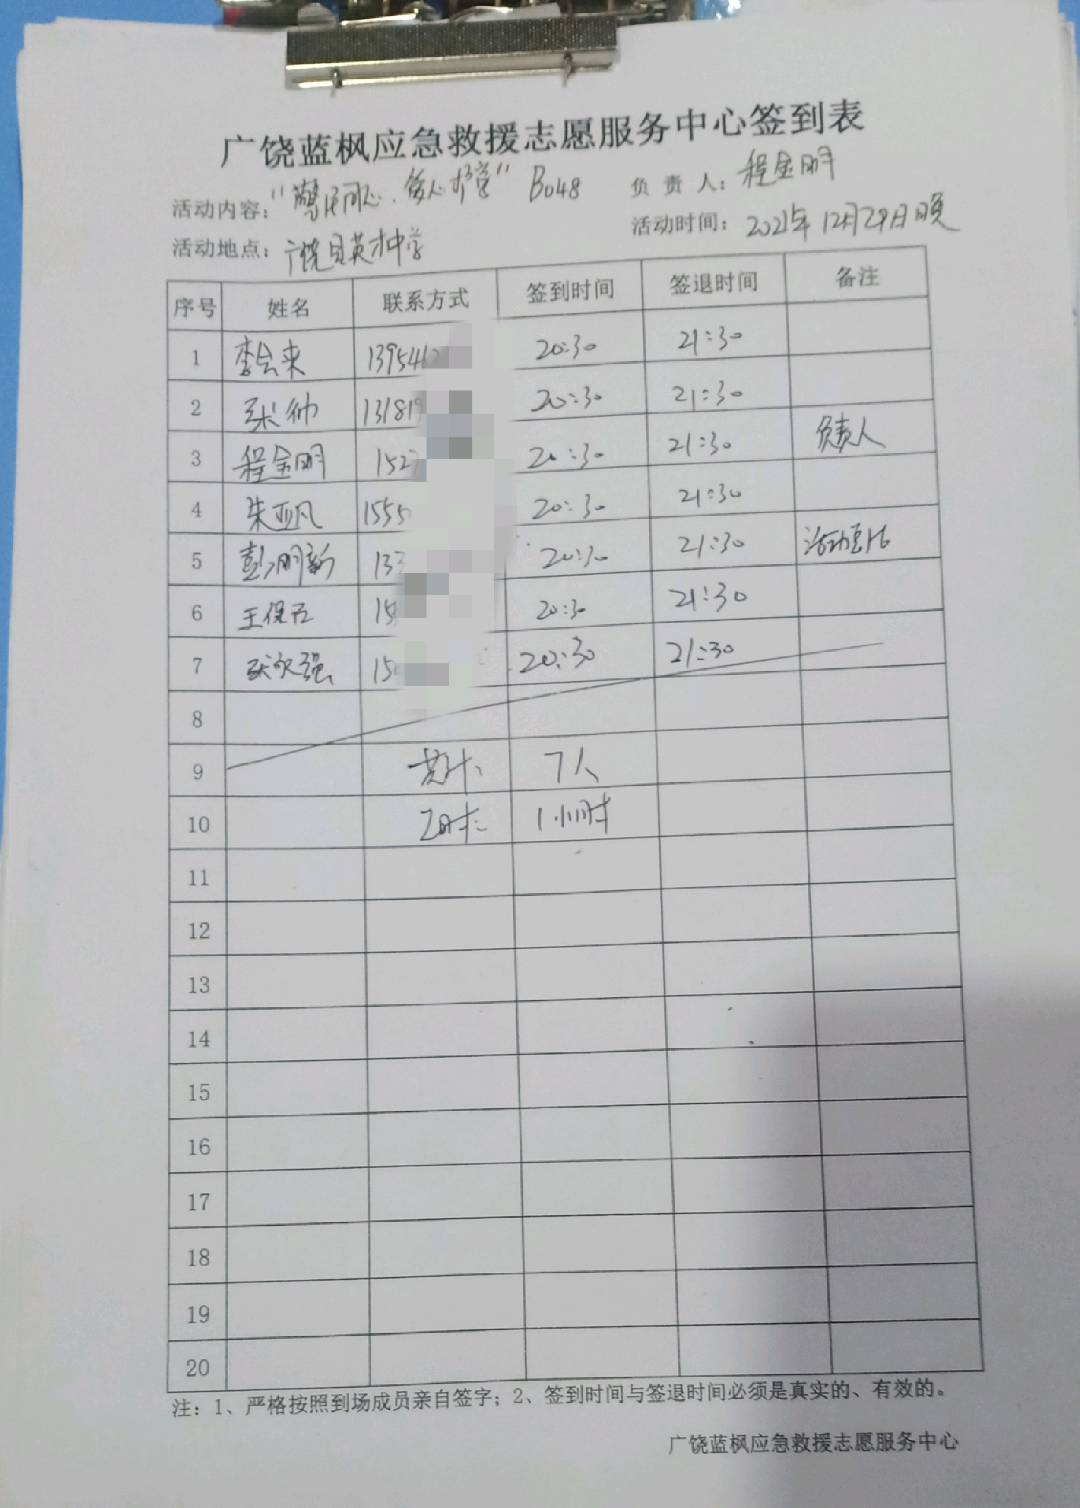 广饶蓝枫应急救援志愿服务中心签到表
活动内容:"警民同心. B048 负责人: 程金明
活动地点: 广饶县英才中学 活动时间: 2021年12月29日晚
序号 姓名 联系方式 签到时间 签退时间 备注
1 李会来 1395462 20:30 21:30
2 张帅 13181 20:30 21:30
3 程金明 152 20:30 21:30 负责人
4 朱亚风 1555 20:30 21:30
5 彭明新 133 20:30 21:30
6 王保石 15 20:30 21:30
7 张永强 150 20:30 21:30
8
9 共计: 7人
10 工时: 1小时
11
12
13
14
15
16
17
18
19
20
注:1、严格按照到场成员亲自签字;2、签到时间与签退时间必须是真实的、有效的。
广饶蓝枫应急救援志愿服务中心